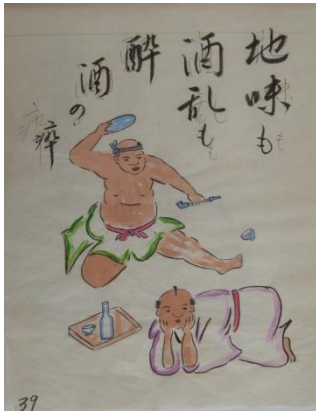 地味も
酒乱も
酔
酒の
39